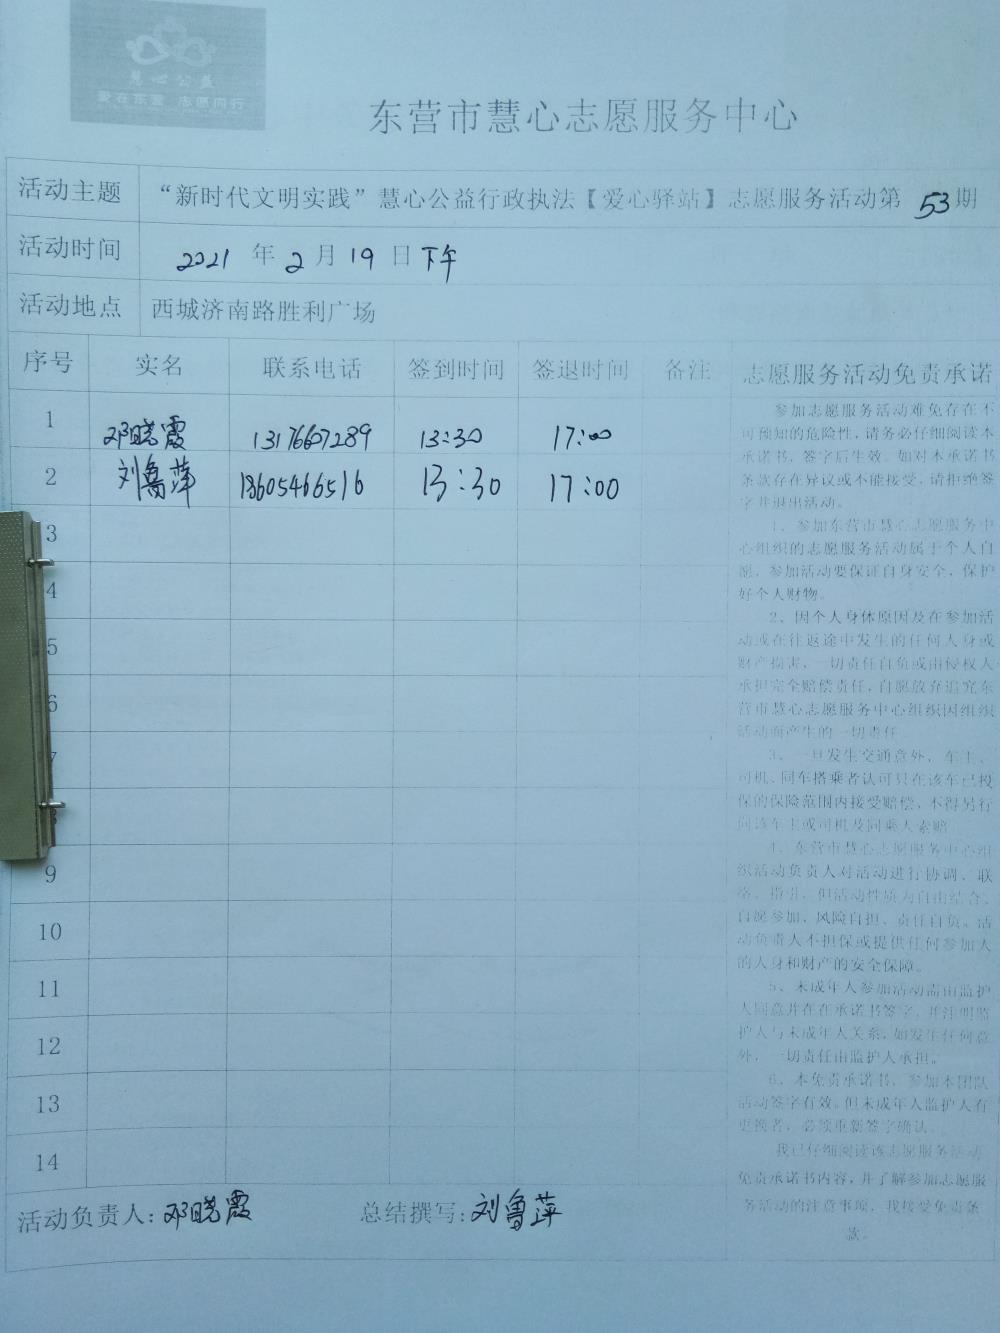 慧心公益
爱在东营 志愿同行
东营市慧心志愿服务中心
活动主题 “新时代文明实践”慧心公益行政执法【爱心驿站】志愿服务活动第 53 期
活动时间 2021 年 2 月 19 日 下午
活动地点 西城济南路胜利广场
序号 实名 联系电话 签到时间 签退时间 备注
1 邓晓霞 13176607289 13:30 17:00
2 刘鲁萍 18605466516 13:30 17:00
3
4
5
6
7
8
9
10
11
12
13
14
活动负责人:邓晓霞 总结撰写:刘鲁萍
志愿服务活动免责承诺
参加志愿服务活动难免存在不
可预知的危险性,请务必仔细阅读本
承诺书,签字后生效。如对本承诺书
条款存在异议或不能接受,请拒绝签
字并退出活动。
1、参加东营市慧心志愿服务中
心组织的志愿服务活动属于个人自
愿,参加活动要保证自身安全,保护
好个人财物。
2、因个人身体原因及在参加活
动或在往返途中发生的任何人身或
财产损害,一切责任自负或由侵权人
承担完全赔偿责任,自愿放弃追究东
营市慧心志愿服务中心组织因组织
活动而产生的一切责任
3、一旦发生交通意外,车主、
司机、同车搭乘者认可只在该车已投
保的保险范围内接受赔偿,不得另行
向该车主或司机及同乘人索赔
4、东营市慧心志愿服务中心组
织活动负责人对活动进行协调、联
络、指引,但活动性质为自由结合、
自愿参加、风险自担、责任自负。活
动负责人不担保或提供任何参加人
的人身和财产的安全保障。
5、未成年人参加活动需由监护
人同意并在在承诺书签字,并注明监
护人与未成年人关系,如发生任何意
外,一切责任由监护人承担。
6、本免责承诺书,参加本团队
活动签字有效。但未成年人监护人有
更换者,必须重新签字确认。
我已仔细阅读该志愿服务活动
免责承诺书内容,并了解参加志愿服
务活动的注意事项,我接受免责条
款。